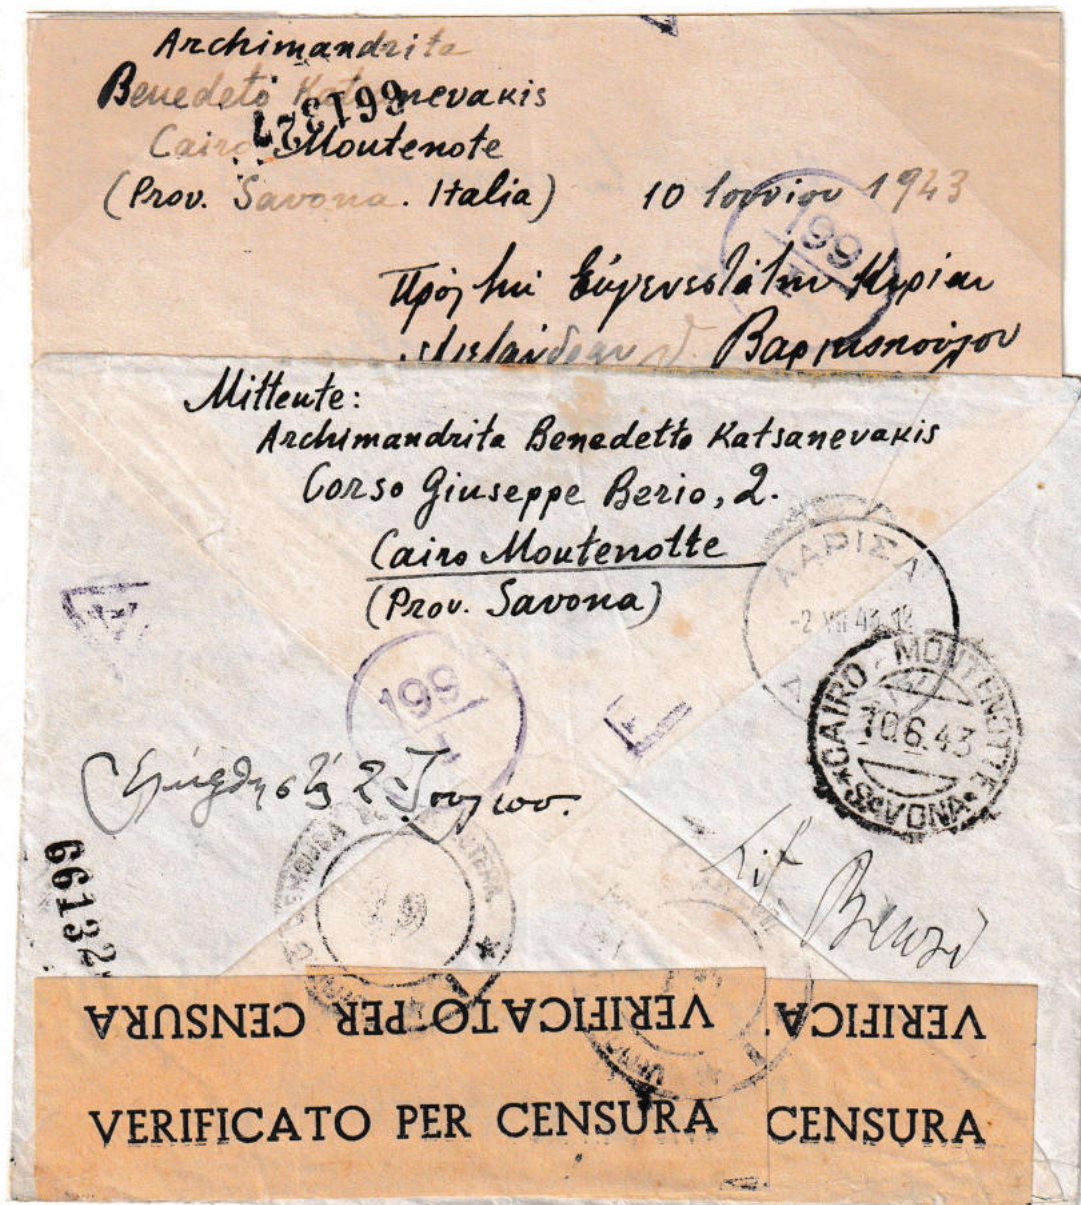 Archimandrita
Benedeto Katsanevakis
661327
Cairo Montenote
(Prov. Savona. Italia)
10 Ιουνίου 1943
199
Πρός τήν Εὐγενεστάτην Κυρίαν
Mittente:
Archimandrita Benedetto Katsanevakis
Corso Giuseppe Berio, 2.
Cairo Montenotte
(Prov. Savona)
ΛΑΡΙΣΑ
-2 VII 43.12
CAIRO-MONTENOTTE
10.6.43
SAVONA
199
Ἐλήφθη στάς 2 Ἰουλίου.
66132
VERIFICATO PER CENSURA
VERIFICA
VERIFICATO PER CENSURA
CENSURA